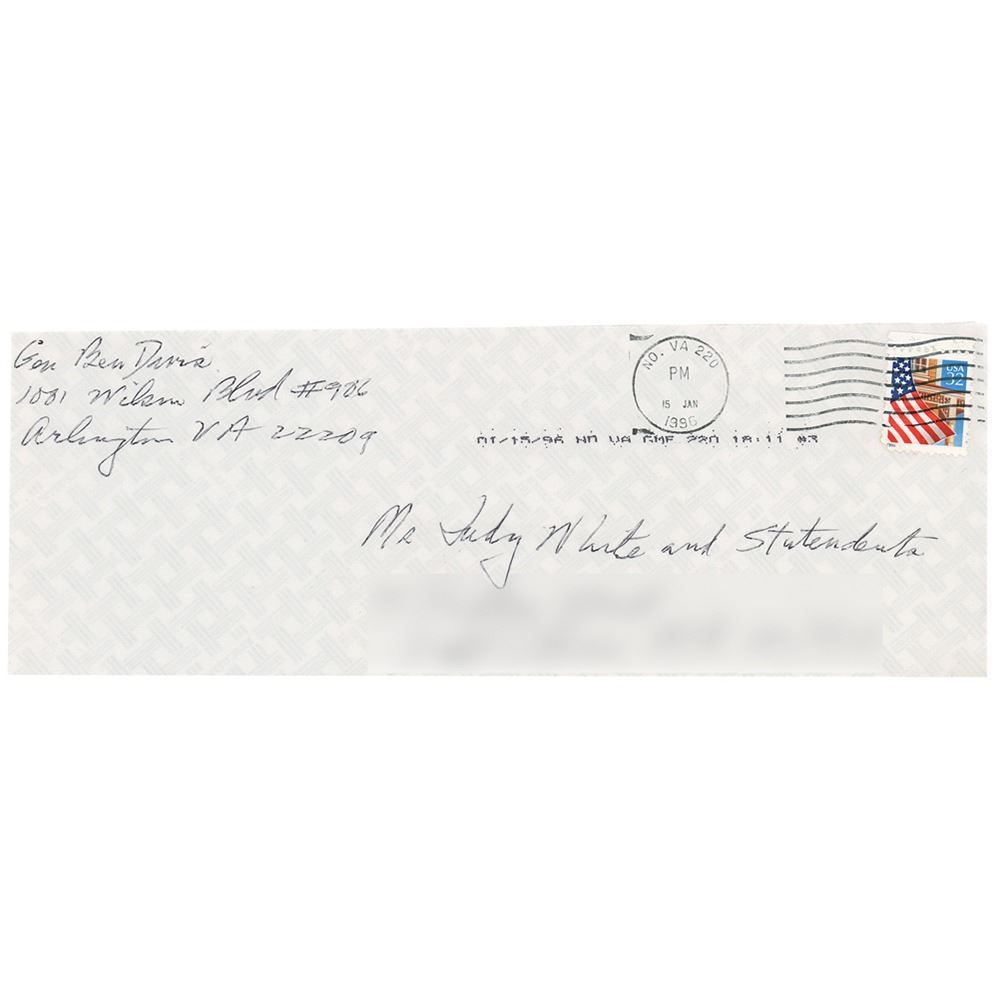 Gen Ben Davis
1001 Wilson Blvd #906
Arlington VA 22209
NO. VA 220
PM
15 JAN
1996
01/15/96 NO VA GMF 220 18:11 #3
USA
32
Ms Judy White and Statendents